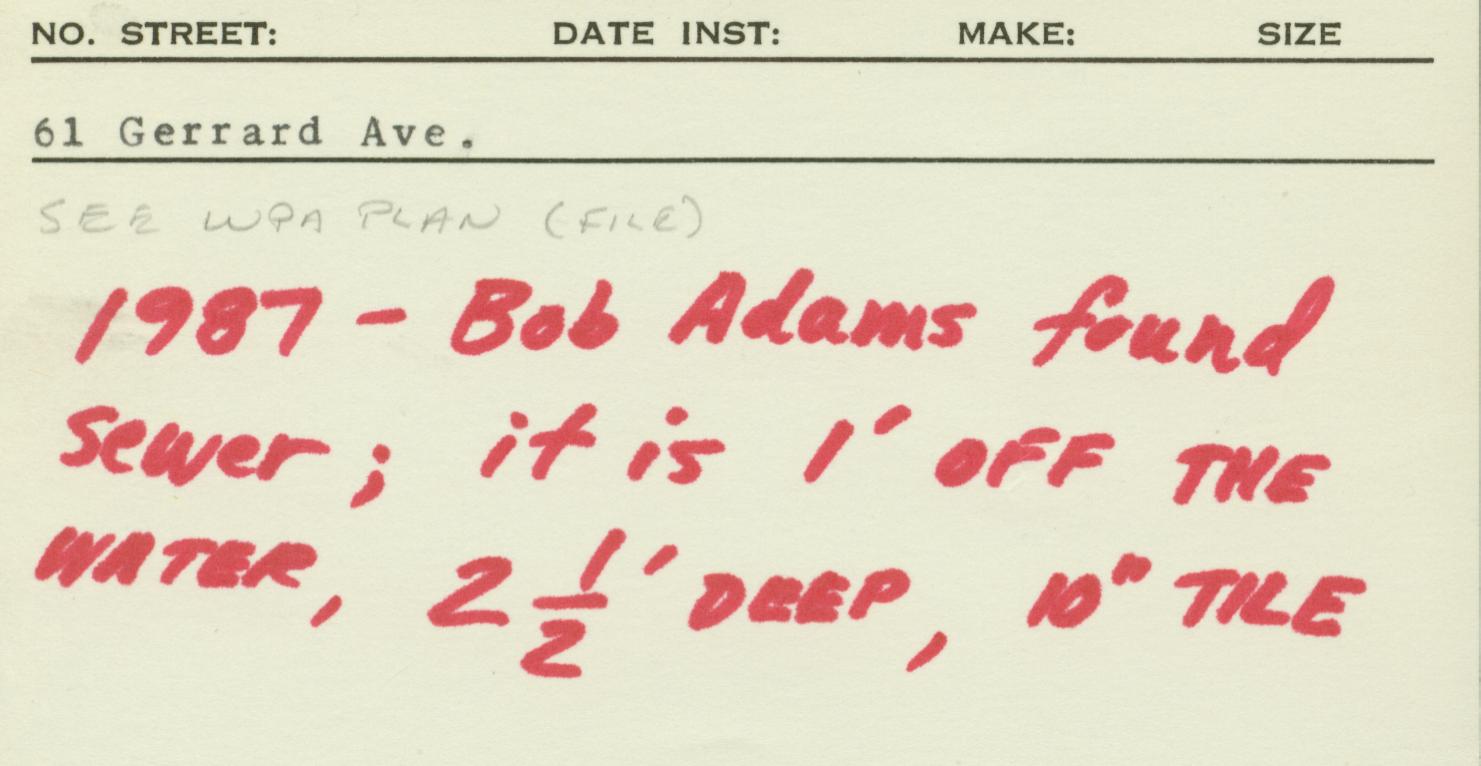 NO. STREET: DATE INST: MAKE: SIZE
61 Gerrard Ave.
SEE WPA PLAN (FILE)
1987 - Bob Adams found
sewer; it is 1' OFF THE
WATER, 2 1/2' DEEP, 10" TILE